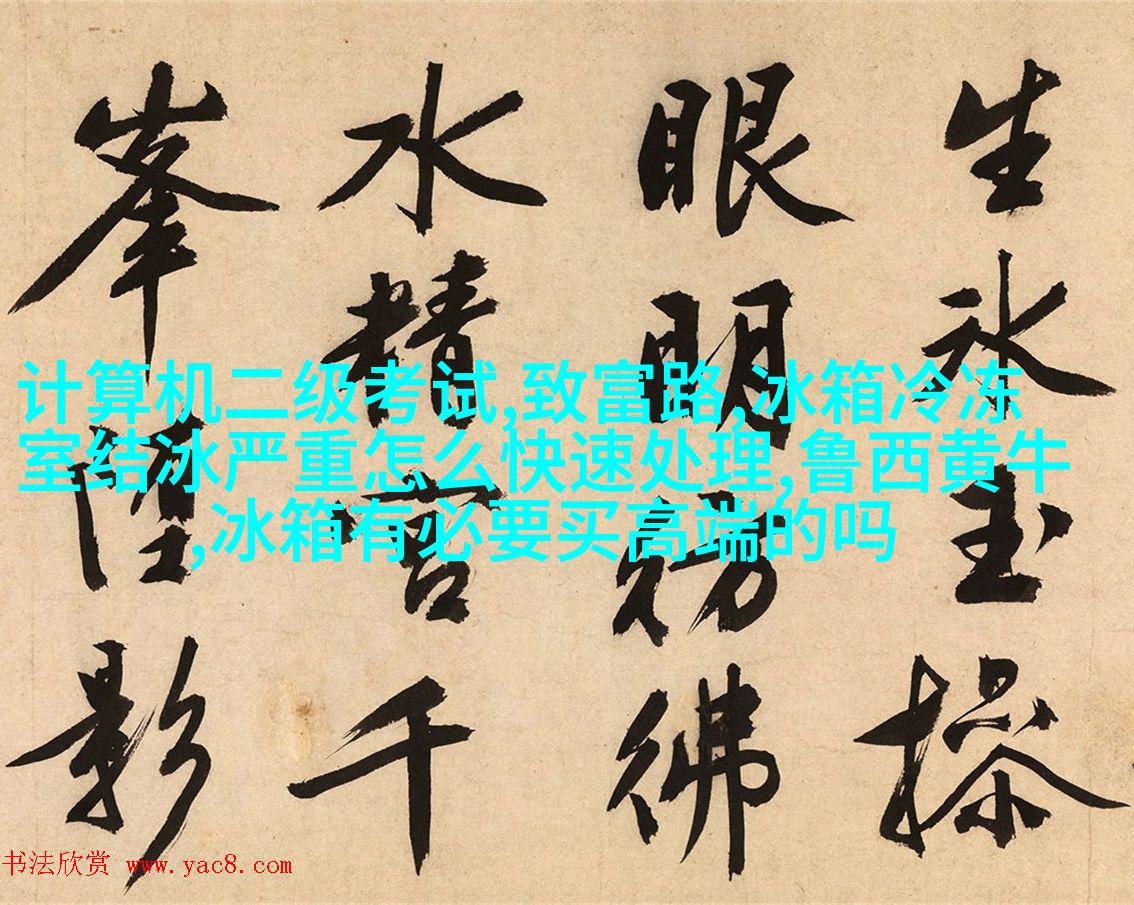 生冰玉操
眼明彷彿
水精宮千
峯堕影
计算机二级考试,致富路,冰箱冷冻
室结冰严重怎么快速处理,鲁西黄牛
,冰箱有必要买高端的吗
书法欣赏 www.yac8.com